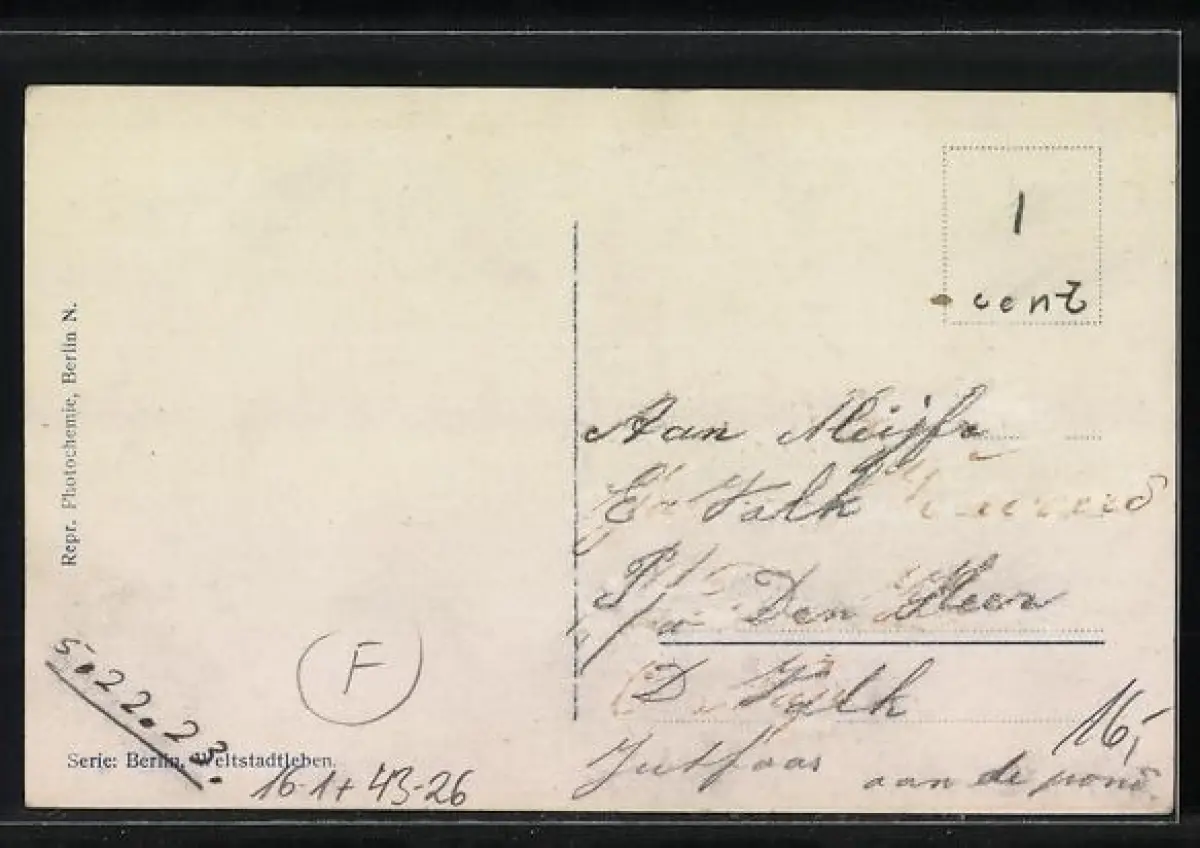 Repr. Photochemie, Berlin N.
1
cent
Aan Meijfr
E Valk
P/a Den Heer
D. Valk
Jutfaas
aan de
16,-
F
5.22.23.
Serie: Berlin, Weltstadtleben.
16-1+ 43-26